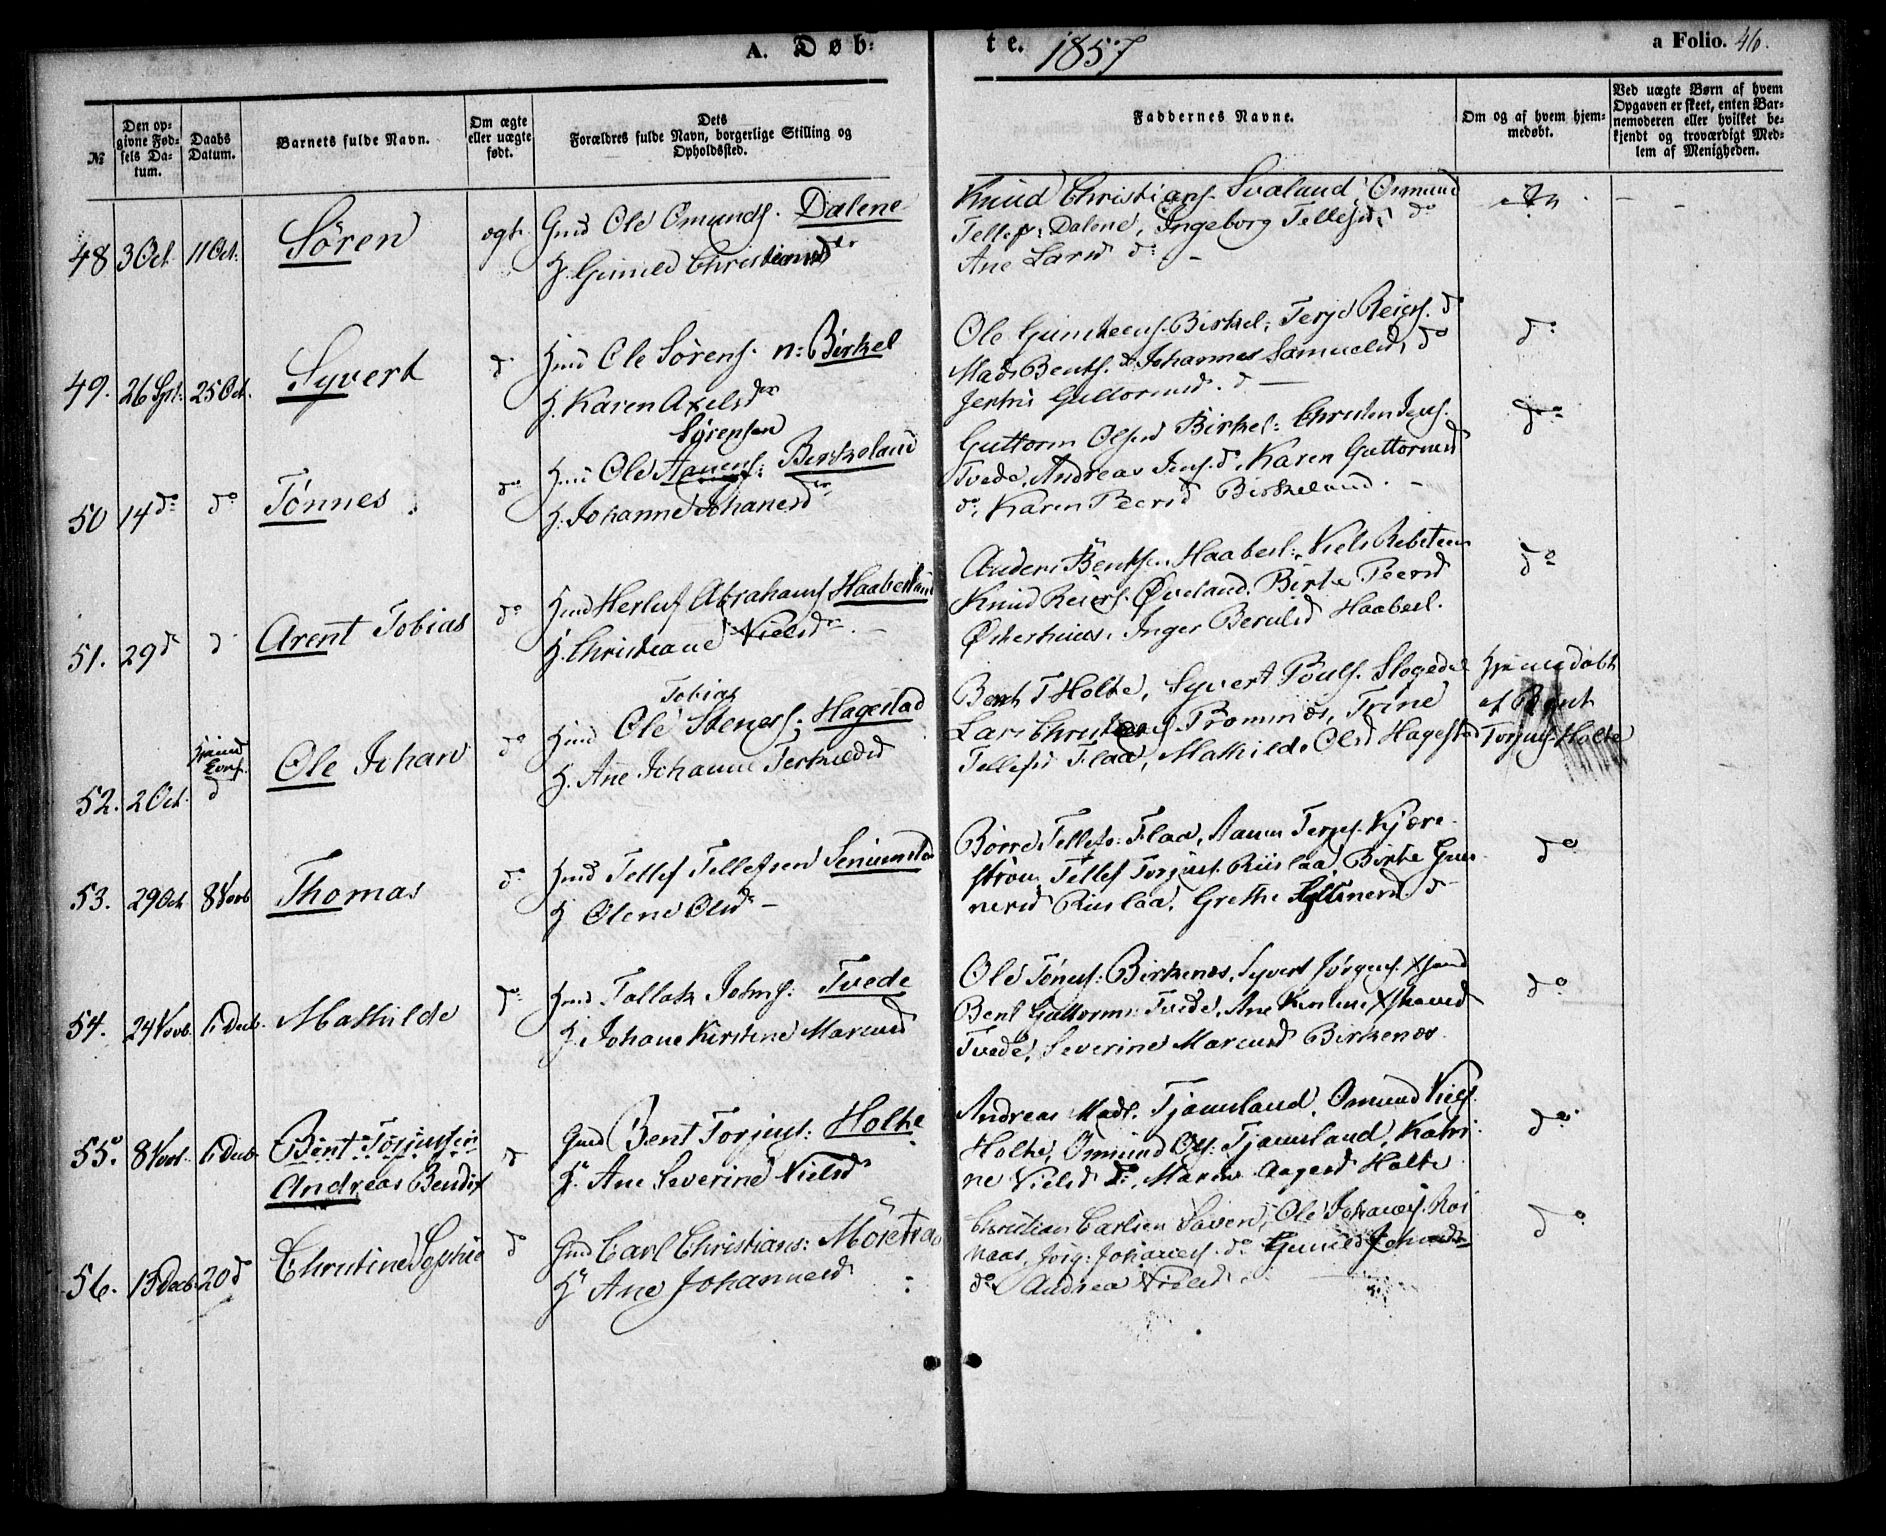 A. Døb-
te. 1857
a Folio. 46.
№
Den op-
givne Fød-
sels Da-
tum.
Daabs
Datum.
Barnets fulde Navn.
Om ægte
eller uægte
født.
Dets
Forældres fulde Navn, borgerlige Stilling og
Opholdssted.
Faddernes Navne.
Om og af hvem hjem-
medøbt.
Ved uægte Børn af hvem
Opgaven er skeet, enten Bar-
nemoderen eller hvilket be-
kjendt og troværdigt Med-
lem af Menigheden.
48 3 Oct. 11 Oct: Sören
Gmd Ole Omunds. Dalene
H. Gunild Christians
Knud Christians. Svaland, Omund
Tellefs: Dalene, Ingeborg Tellefsd. do
Ane Larsd do
49. 26 Spt: 25 Oct. Syvert do
Hmd Ole Sörens. n: Birkel
H. Karen Axelsdr
Ole Birkel: Terje Reiers. do
Mads Bents. do Johannes Samuelsd. do
Guttormsd. do
do
50 14 do do Tönnes do
Sörensen
Hmd Ole Aanens: Berkeland
H. Johanne Johanesdr
Guttorm Olsen Birkel: Christen Jens.
Tvede, Andreas Jens. do, Karen Guttormsd
do, Karen Peersd Birkeland.
do
51. 29 d d Arent Tobias do
Hmd Herluf Abrahams Haabesland
H. Christiane Nielsdr
Anders Bentsen Haabesl:, Niels Rebsteen
Knud Reiers. Øveland. Birte Peersd
Østerhuus, Inger Berulsd Haabesl.
do
52. 2 Oct. d Ole Johan do
Tobias
Hmd Ole Steners; Hagestad
H. Ane Johanne Terkildsd
Bent T Holte, Syvert Pouls. Slogedal
Lars Tromnes, Trine
Tellefsd Flaa, Mathilde Olsd Hagestad
Hjemedöbt
af Bent
Torjus Holte
53. 29 Oct 8 Novb Thomas do
Hmd Tellef Tellefsen Senumstad
H Olene Olsd
Börre Tellefs: Flaa, Aanen Terjes. Kjære-
ström Tellef Torjus. Riislaa, Birte Gun-
nersd Riislaa. Grethe d
do
54. 24 Novb. 6 Decb. Mathilde do
Hmd Tallak Johns: Tvede
H. Johane Kirstine Marcusd
Ole Töness: Birkenes, Syvert Jörgens.
Bent Guttorms: Tvede, Ane
Tvede, Severine Marcusd Birkenes.
do
55. 8 Novb. 6 Decb. Bent Torjussen
Andreas Bendix
d
Gmd Bent Torjus: Holte
H. Ane Severine Nielsd
Andreas Mads. Tjomsland. Omund Niels.
Holte, Omund Ols: Tjomsland, Katri-
ne Nielsd do, Maren Aagesd Holte
do
56. 13 Decb. 20 d Christine Sophie d
Gmd Carl Christians:
H Ane Johannesd
Christian Carlsen Ole Johanes. Ros
naas, Jörg: Johanes. do Gunild
do Andrea Nielsd
do